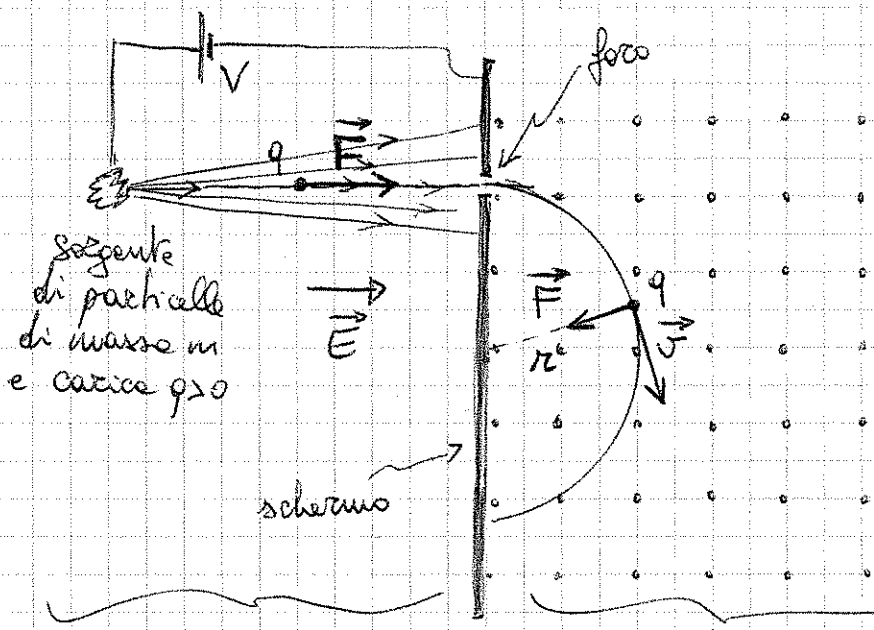 foro
V
q
F
sorgente
di particelle
di massa m
e carica q>0
E
F
q
r
v
schermo